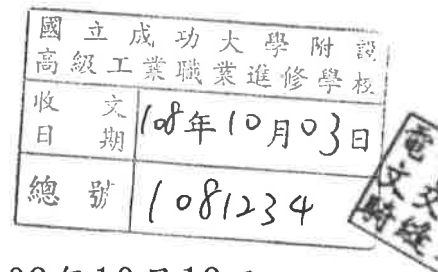 國立成功大學附設
高級工業職業進修學校
收文日期 108年10月03日
總號 1081234
電文
騎縫